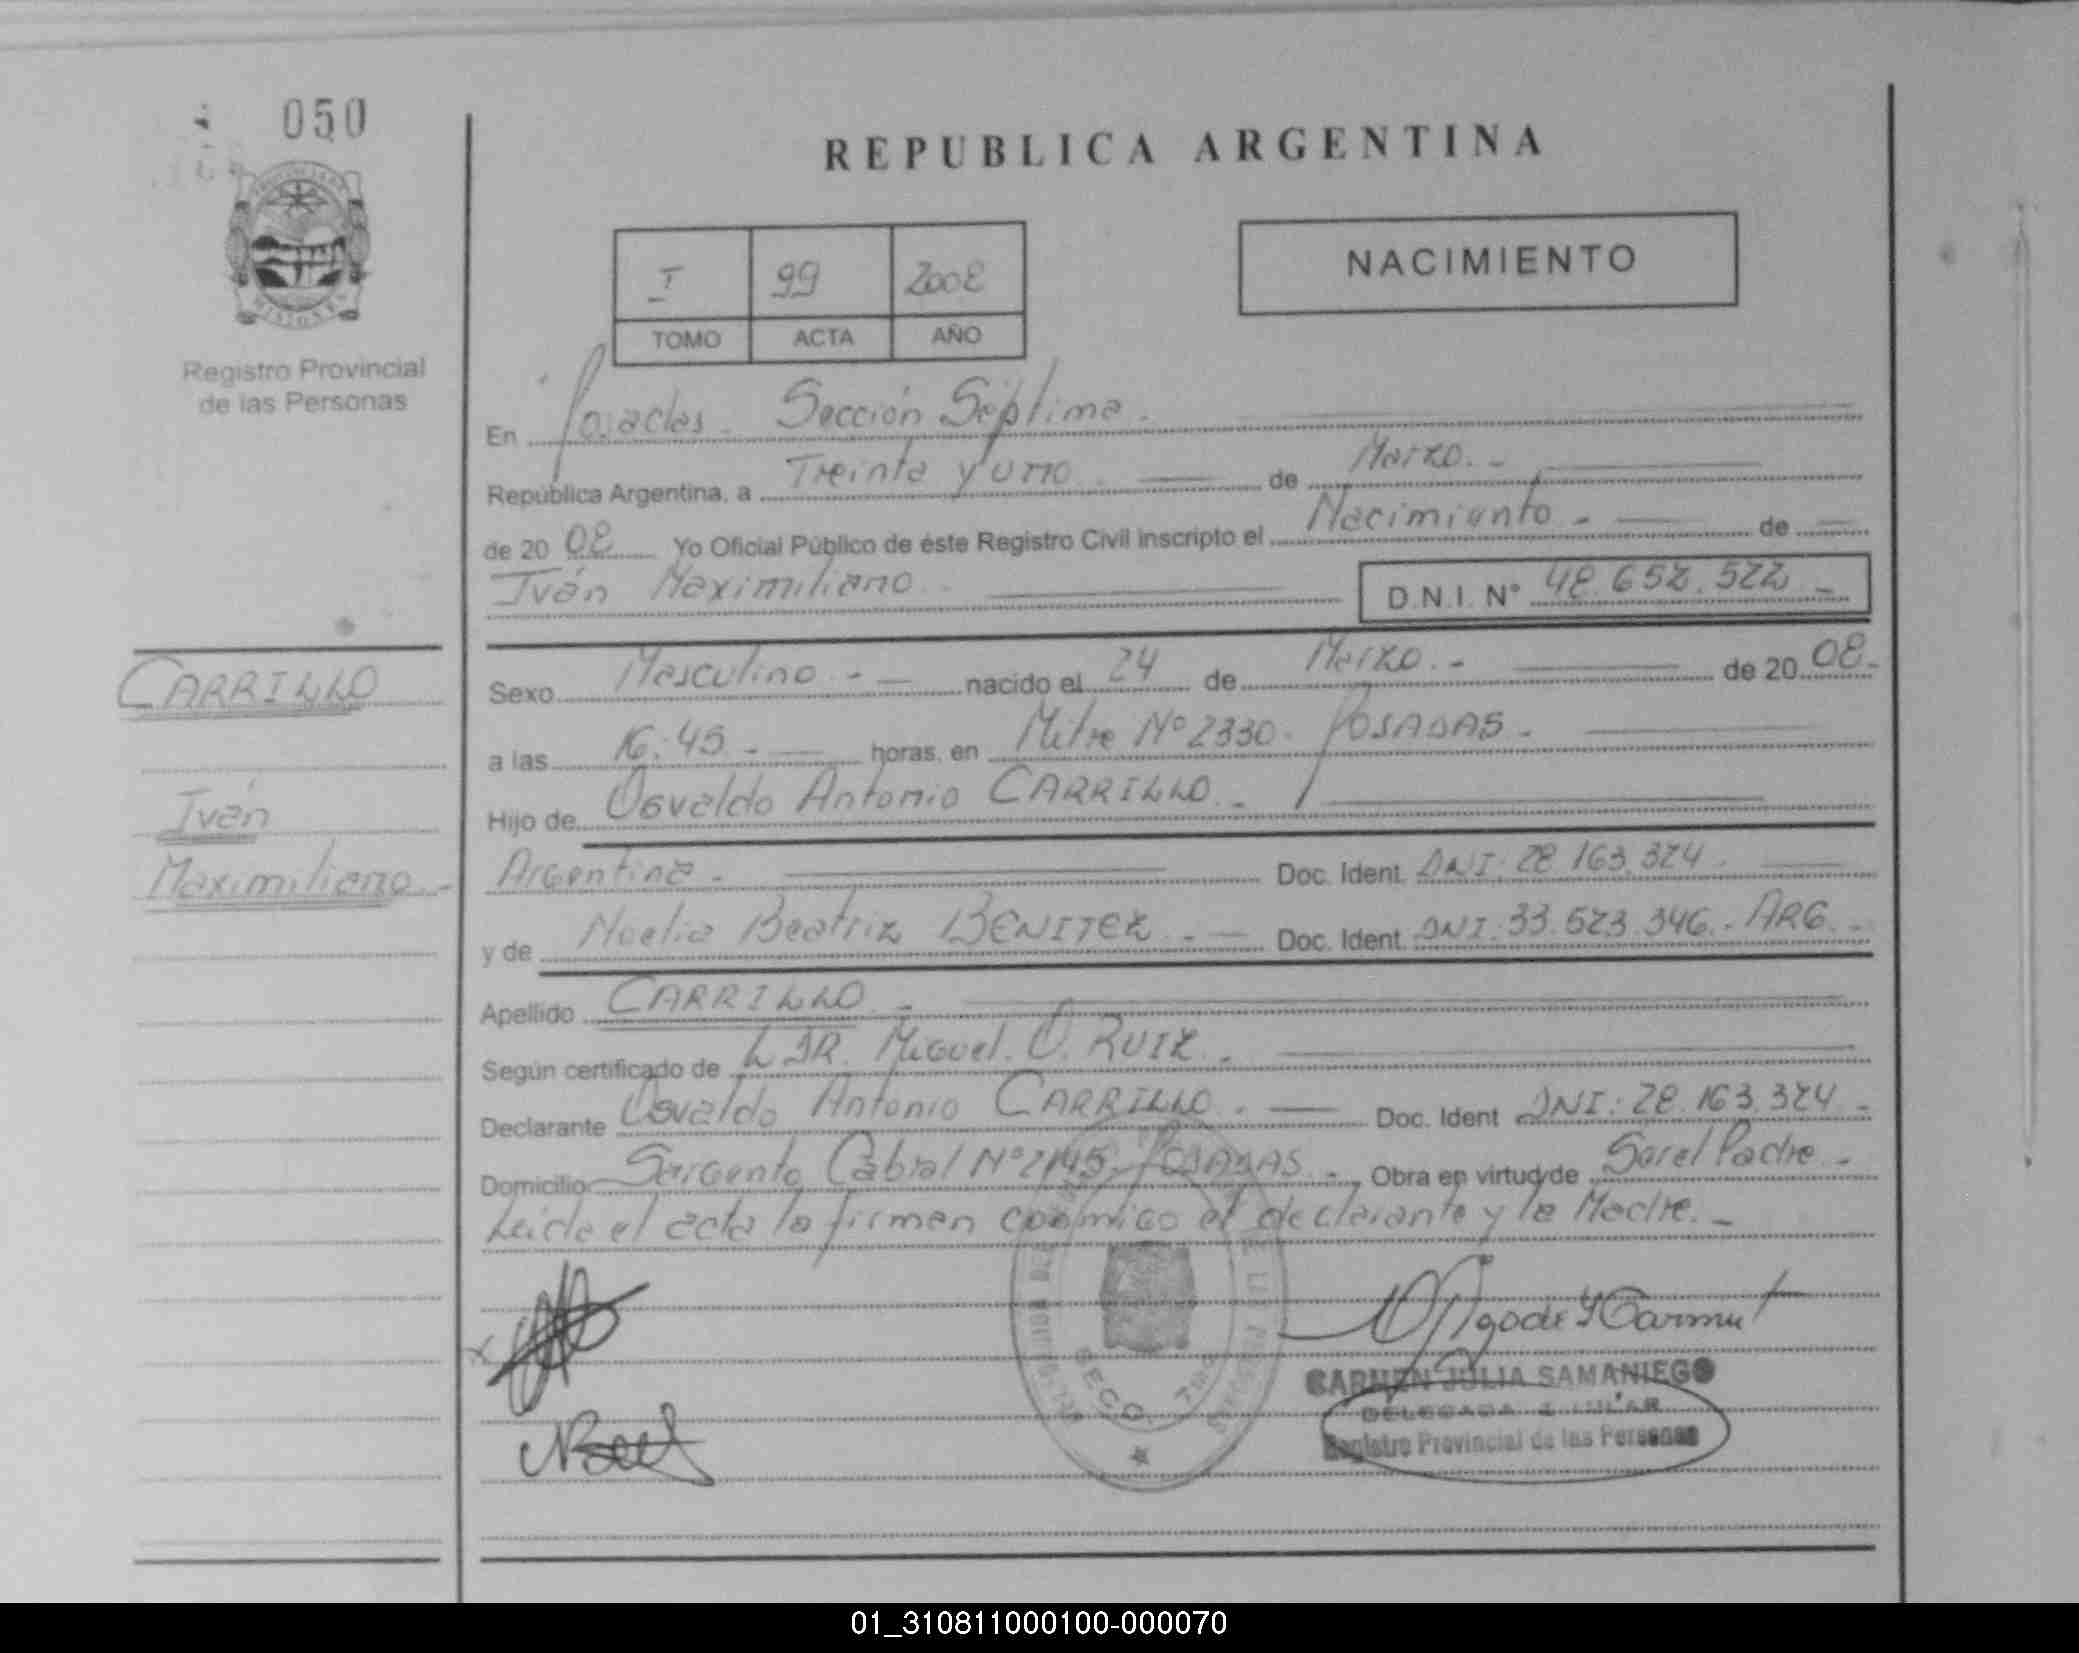 050
REPUBLICA ARGENTINA
NACIMIENTO
I 99 2008
TOMO ACTA AÑO
Registro Provincial
de las Personas
En Posadas. Sección Séptima.
República Argentina, a Treinta y uno. de Marzo.-
de 20 08 Yo Oficial Público de éste Registro Civil inscripto el Nacimiento - de
Iván Maximiliano. D.N.I. Nº 48.652.522 -
CARRILLO
Sexo Masculino - nacido el 24 de Marzo.- de 20 08.-
a las 16:45 - horas, en Mitre Nº 2330. POSADAS -
Iván
Hijo de Osvaldo Antonio CARRILLO. -
Maximiliano.-
Argentina - Doc. Ident. DNI: 28.163.324.
y de Noelia Beatriz BENITEZ. - Doc. Ident. DNI: 33.523.346.- ARG.-
Apellido CARRILLO. -
Según certificado de LDR. Miguel. O. RUIZ. -
Declarante Osvaldo Antonio CARRILLO. - Doc. Ident DNI: 28.163.324 -
Domicilio Sargento Cabral Nº 2145. POSADAS. - Obra en virtud de Ser el Padre. -
Leída el acta la firman conmigo el declarante y la Madre. -
CARMEN JULIA SAMANIEGO
DELEGADA TITULAR
Registro Provincial de las Personas
01_310811000100-000070